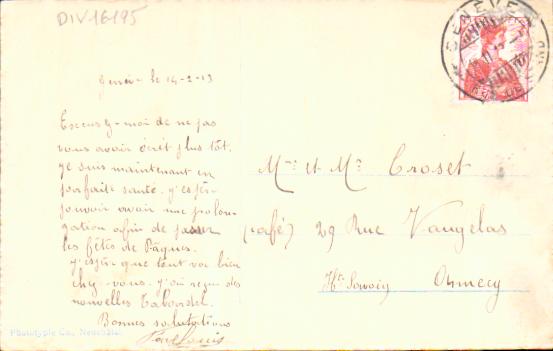 DIV16195
GENEVE
Genève le 14-2-13
Excusez-moi de ne pas
vous avoir écrit plus tôt.
Je suis maintenant en
parfaite santé. J'espèr
pouvoir avoir une prolon-
gation afin de passer
les fêtes de Pâques.
J'espèr que tout va bien
chez-vous. J'ai reçu des
nouvelles
Bonnes salutations
Mme et Mr Croset
(café) 29 Rue Vaugelas
Hte Savoie Annecy
Phototypie Co., Neuchâtel